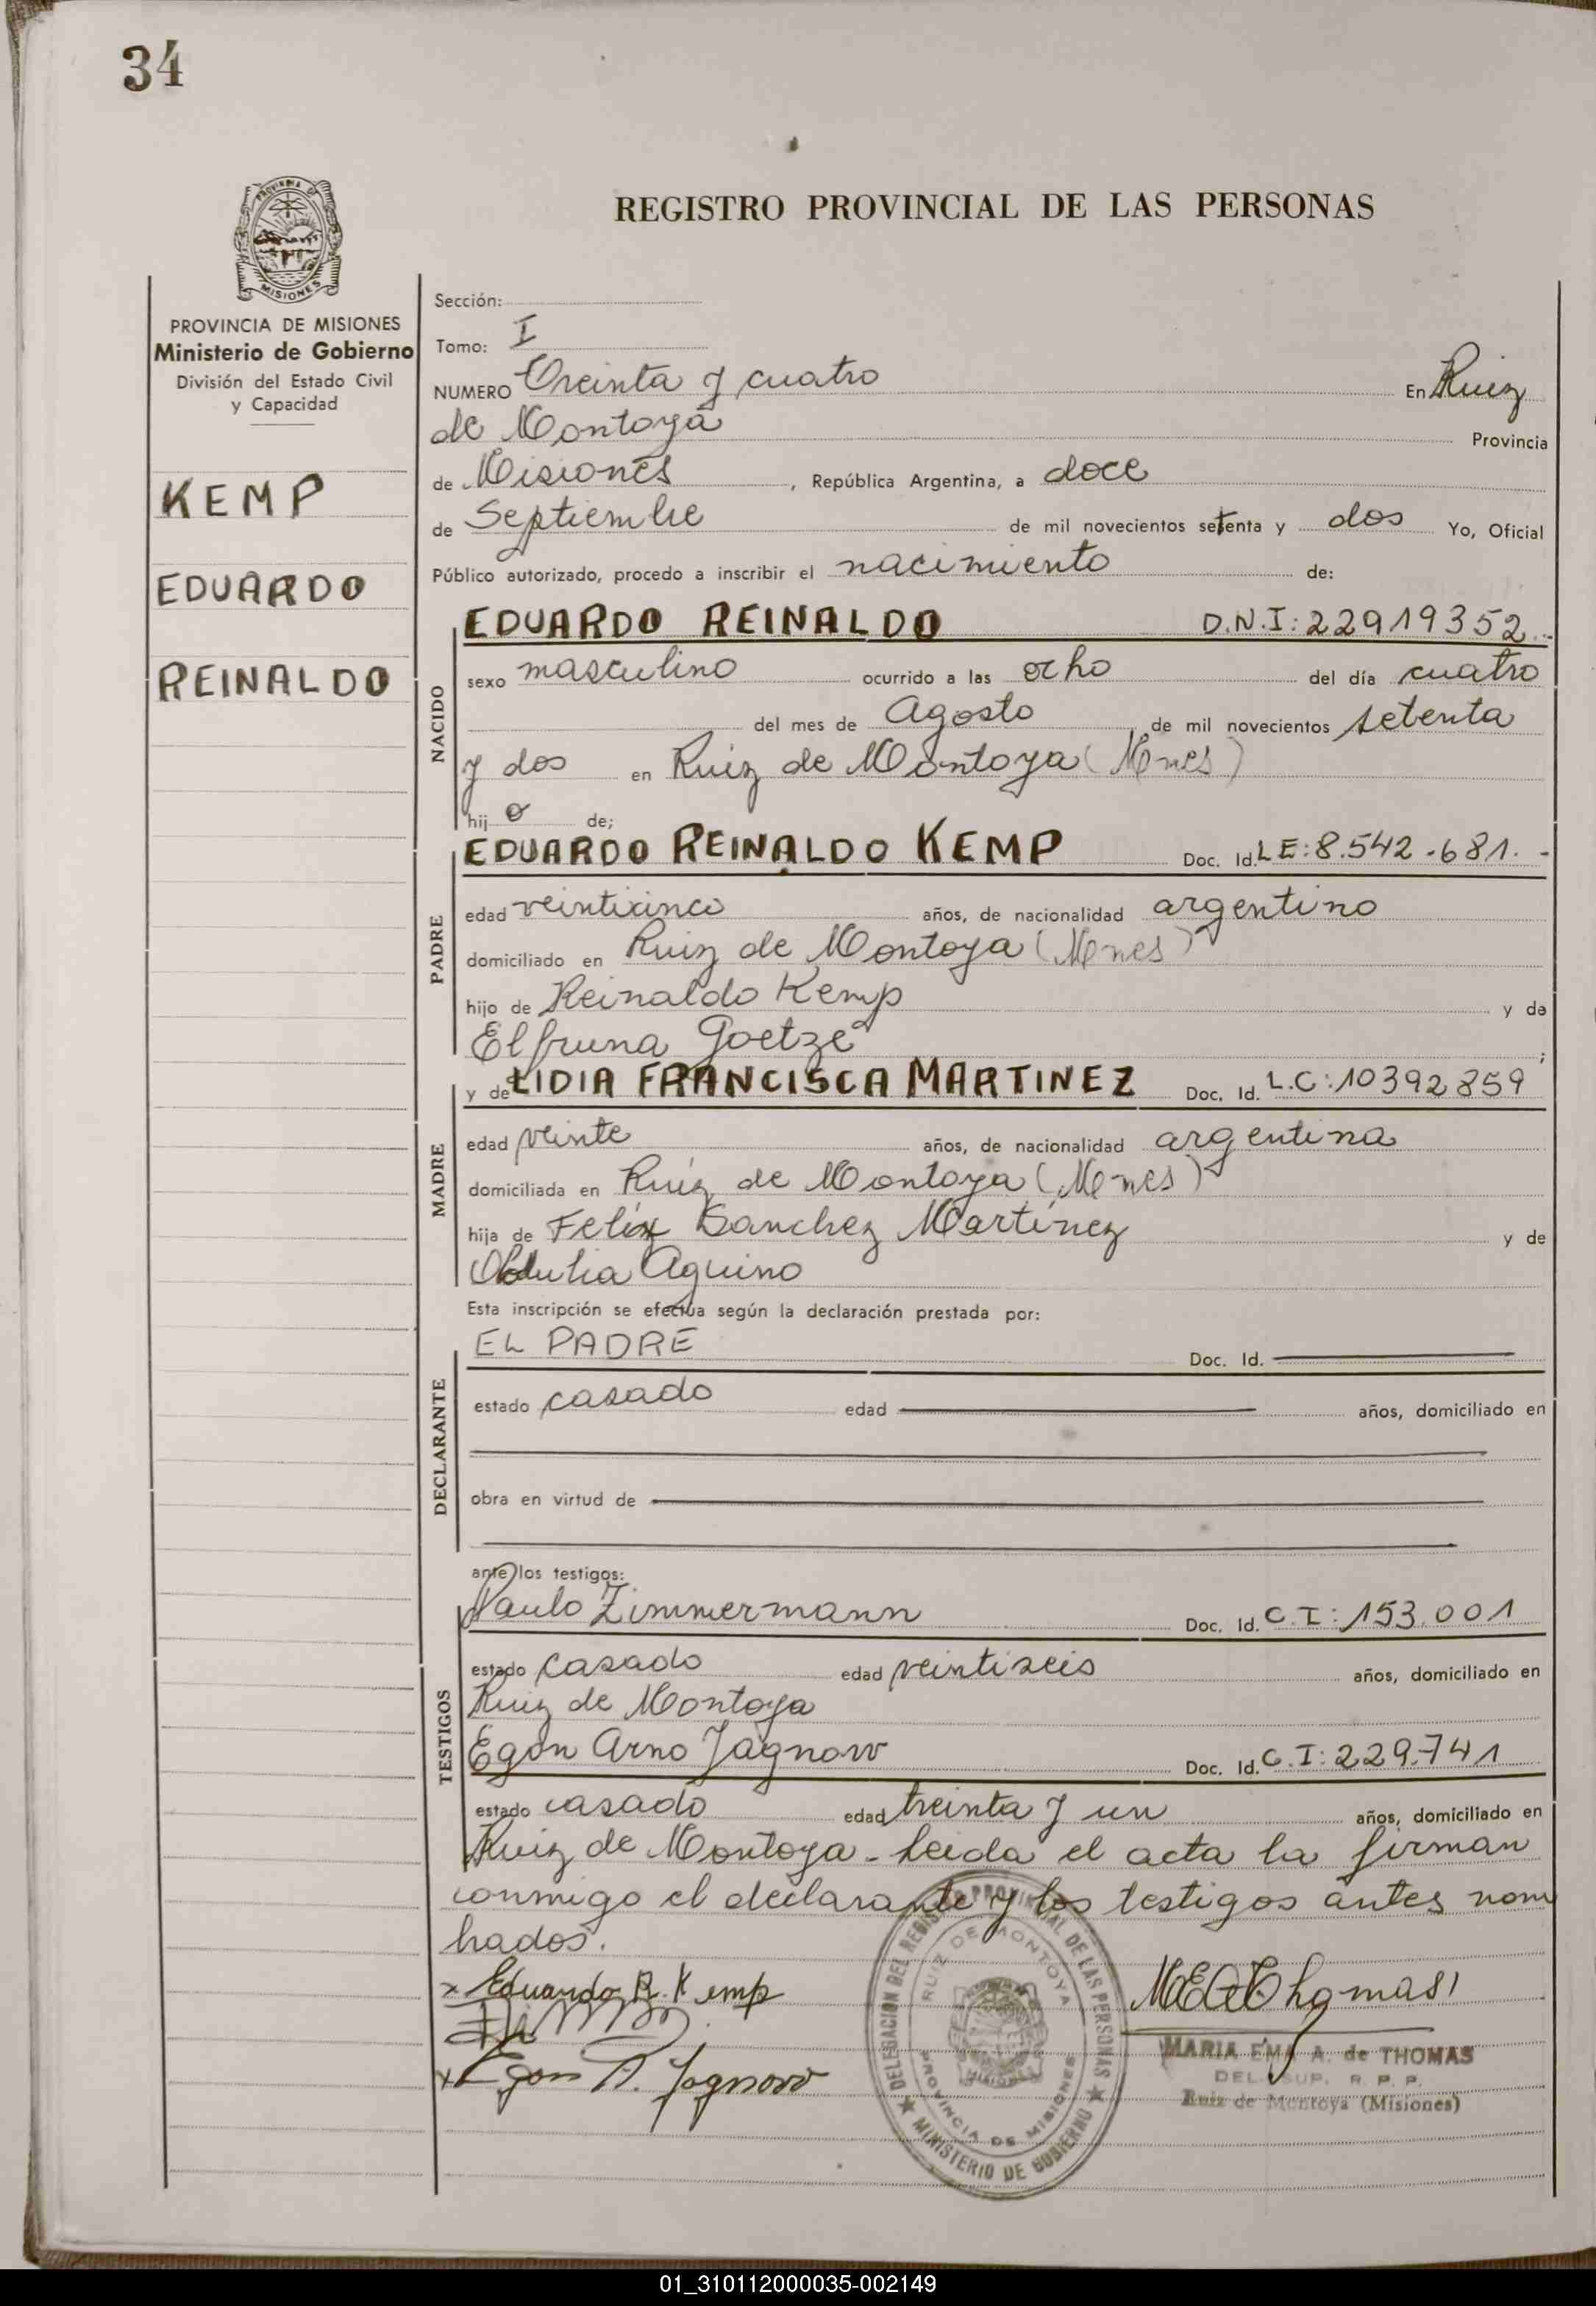 34
REGISTRO PROVINCIAL DE LAS PERSONAS
MISIONES
PROVINCIA DE MISIONES
Ministerio de Gobierno
División del Estado Civil
y Capacidad
KEMP
EDUARDO
REINALDO
Sección:
Tomo: I
NUMERO Treinta y cuatro En Ruiz
de Montoya Provincia
de Misiones, República Argentina, a doce
de Septiembre de mil novecientos setenta y dos Yo, Oficial
Público autorizado, procedo a inscribir el nacimiento de:
NACIDO
EDUARDO REINALDO D.N.I: 22919352.-
sexo masculino ocurrido a las ocho del día cuatro
del mes de Agosto de mil novecientos setenta
y dos en Ruiz de Montoya (Mnes)
hijo de;
PADRE
EDUARDO REINALDO KEMP Doc. Id. LE: 8.542.681.-
edad veinticinco años, de nacionalidad argentino
domiciliado en Ruiz de Montoya (Mnes)
hijo de Reinaldo Kemp y de
Elfruna Goetze;
MADRE
y de LIDIA FRANCISCA MARTINEZ Doc. Id. L.C: 10392859
edad veinte años, de nacionalidad argentina
domiciliada en Ruiz de Montoya (Mnes)
hija de Felix Sanchez Martinez y de
Obdulia Aquino
Esta inscripción se efectua según la declaración prestada por:
DECLARANTE
EL PADRE Doc. Id.
estado casado edad años, domiciliado en
obra en virtud de
ante los testigos:
TESTIGOS
Paulo Zimmermann Doc. Id. C.I: 153.001
estado casado edad veintiseis años, domiciliado en
Ruiz de Montoya
Egon Arno Jagnow Doc. Id. C.I: 229.741
estado casado edad treinta y un años, domiciliado en
Ruiz de Montoya - Leida el acta la firman
conmigo el declarante y los testigos antes nom
brados.
x Eduardo R. Kemp
x Egon A. Jagnow
DELEGACION DEL REGISTRO PROVINCIAL DE LAS PERSONAS
RUIZ DE MONTOYA
PROVINCIA DE MISIONES
MINISTERIO DE GOBIERNO
MEA Thomas
MARIA EMA A. de THOMAS
DEL. SUP. R. P. P.
Ruiz de Montoya (Misiones)
01_310112000035-002149